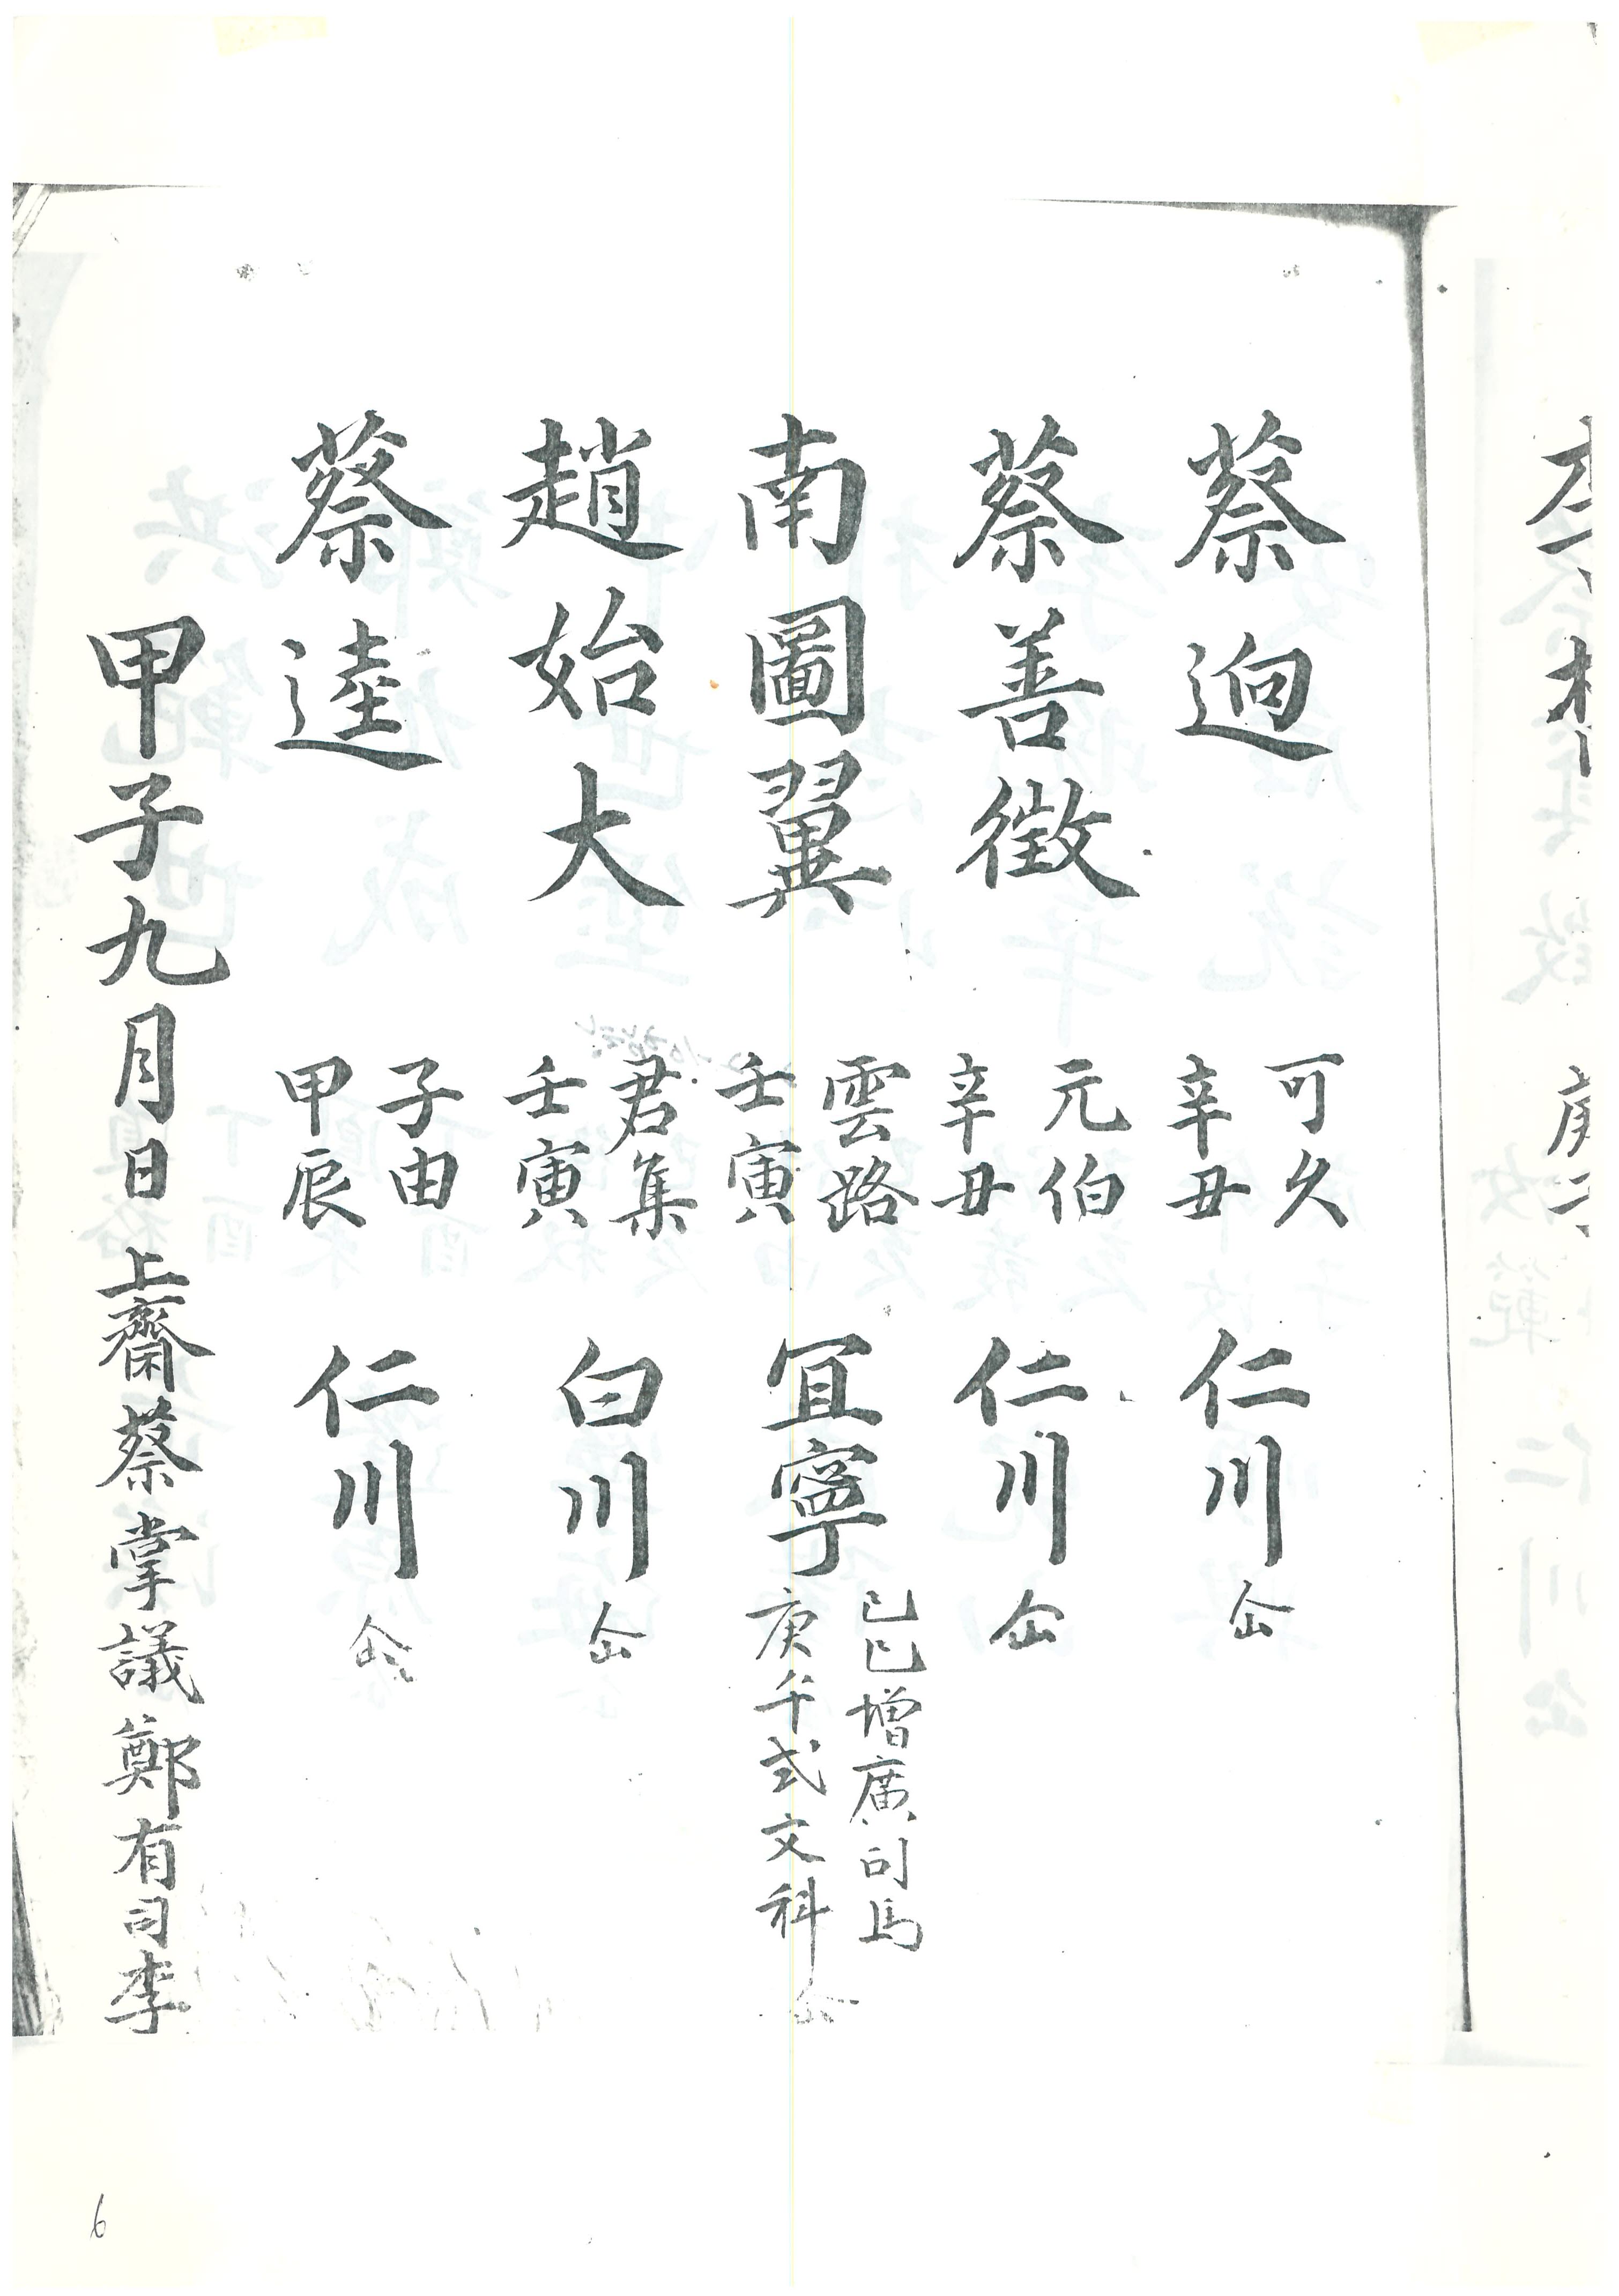 蔡逈 可久 辛丑 仁川 仚
蔡善徵 元伯 辛丑 仁川 仚
南圖翼 雲路 壬寅 宜寧 己巳增廣司馬 庚午式文科 仚
趙始大 君集 壬寅 白川 仚
蔡逵 子由 甲辰 仁川 仚
甲子九月日 上齋蔡 掌議鄭 有司李
6